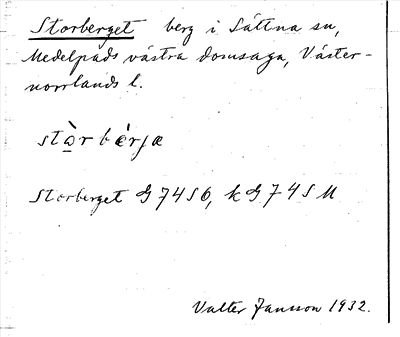 Storberget berg i Sättna sn,
Medelpads västra domsaga, Väster-
norrlands l.
stòrbérjæ
Storberget G 74 S 6, k G 74 S M
Valter Jansson 1932.